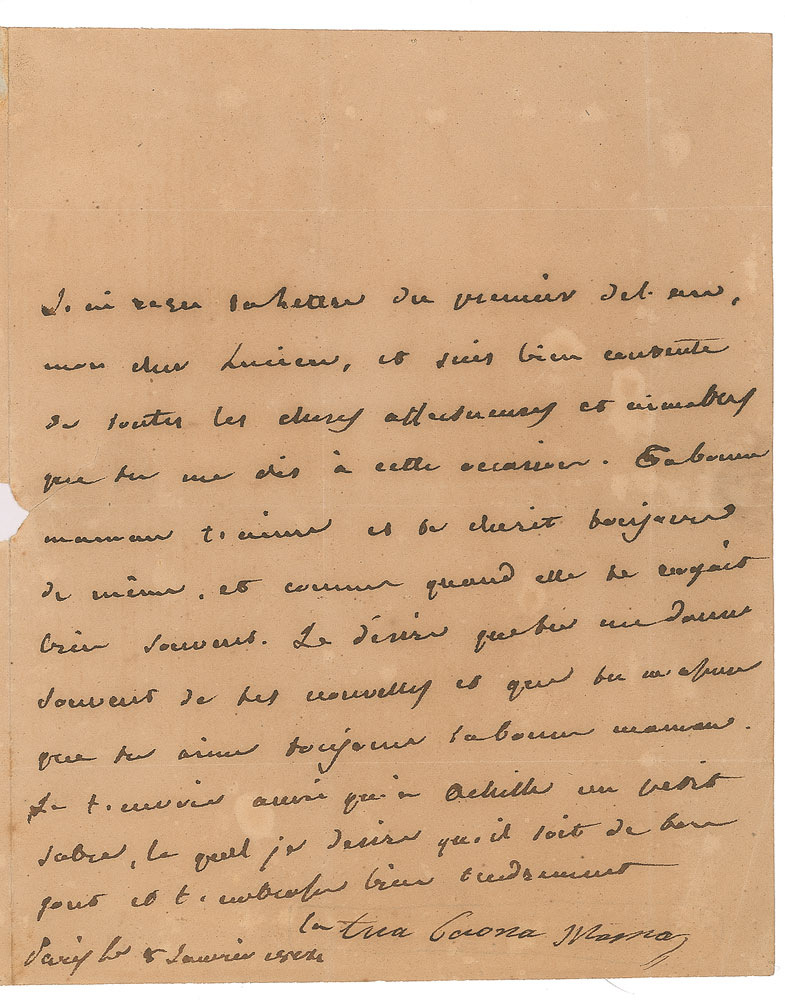 J. ai reçu ta lettre du premier del. an,
mon cher Lucien, et suis bien contente
de toutes les choses affectueuses et aimables
que tu me dis à cette occasion. Ta bonne
maman t. aime et te cherit toujours
de même, et comme quand elle te voyait
bien souvent. Je désire que tu me donne
souvent de tes nouvelles et que tu
que tu aime toujours ta bonne maman.
Je t. envoie ainsi qu'a Achille un petit
sabre, le quel je desire qu. il soit de bon
gout et t. embrasse bien tendrement
la tua buona Mama
Paris le 8 Janvier